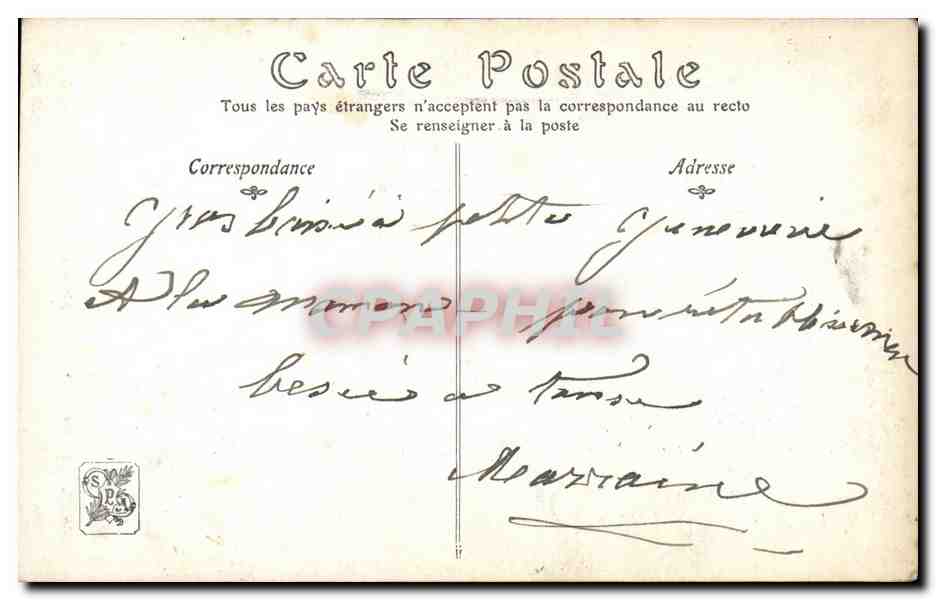 Carte Postale
Tous les pays étrangers n'acceptent pas la correspondance au recto
Se renseigner à la poste
Correspondance
Adresse
gros à petite Genevieve
A la maman
a
Marraine
CPAPHIL
SPA